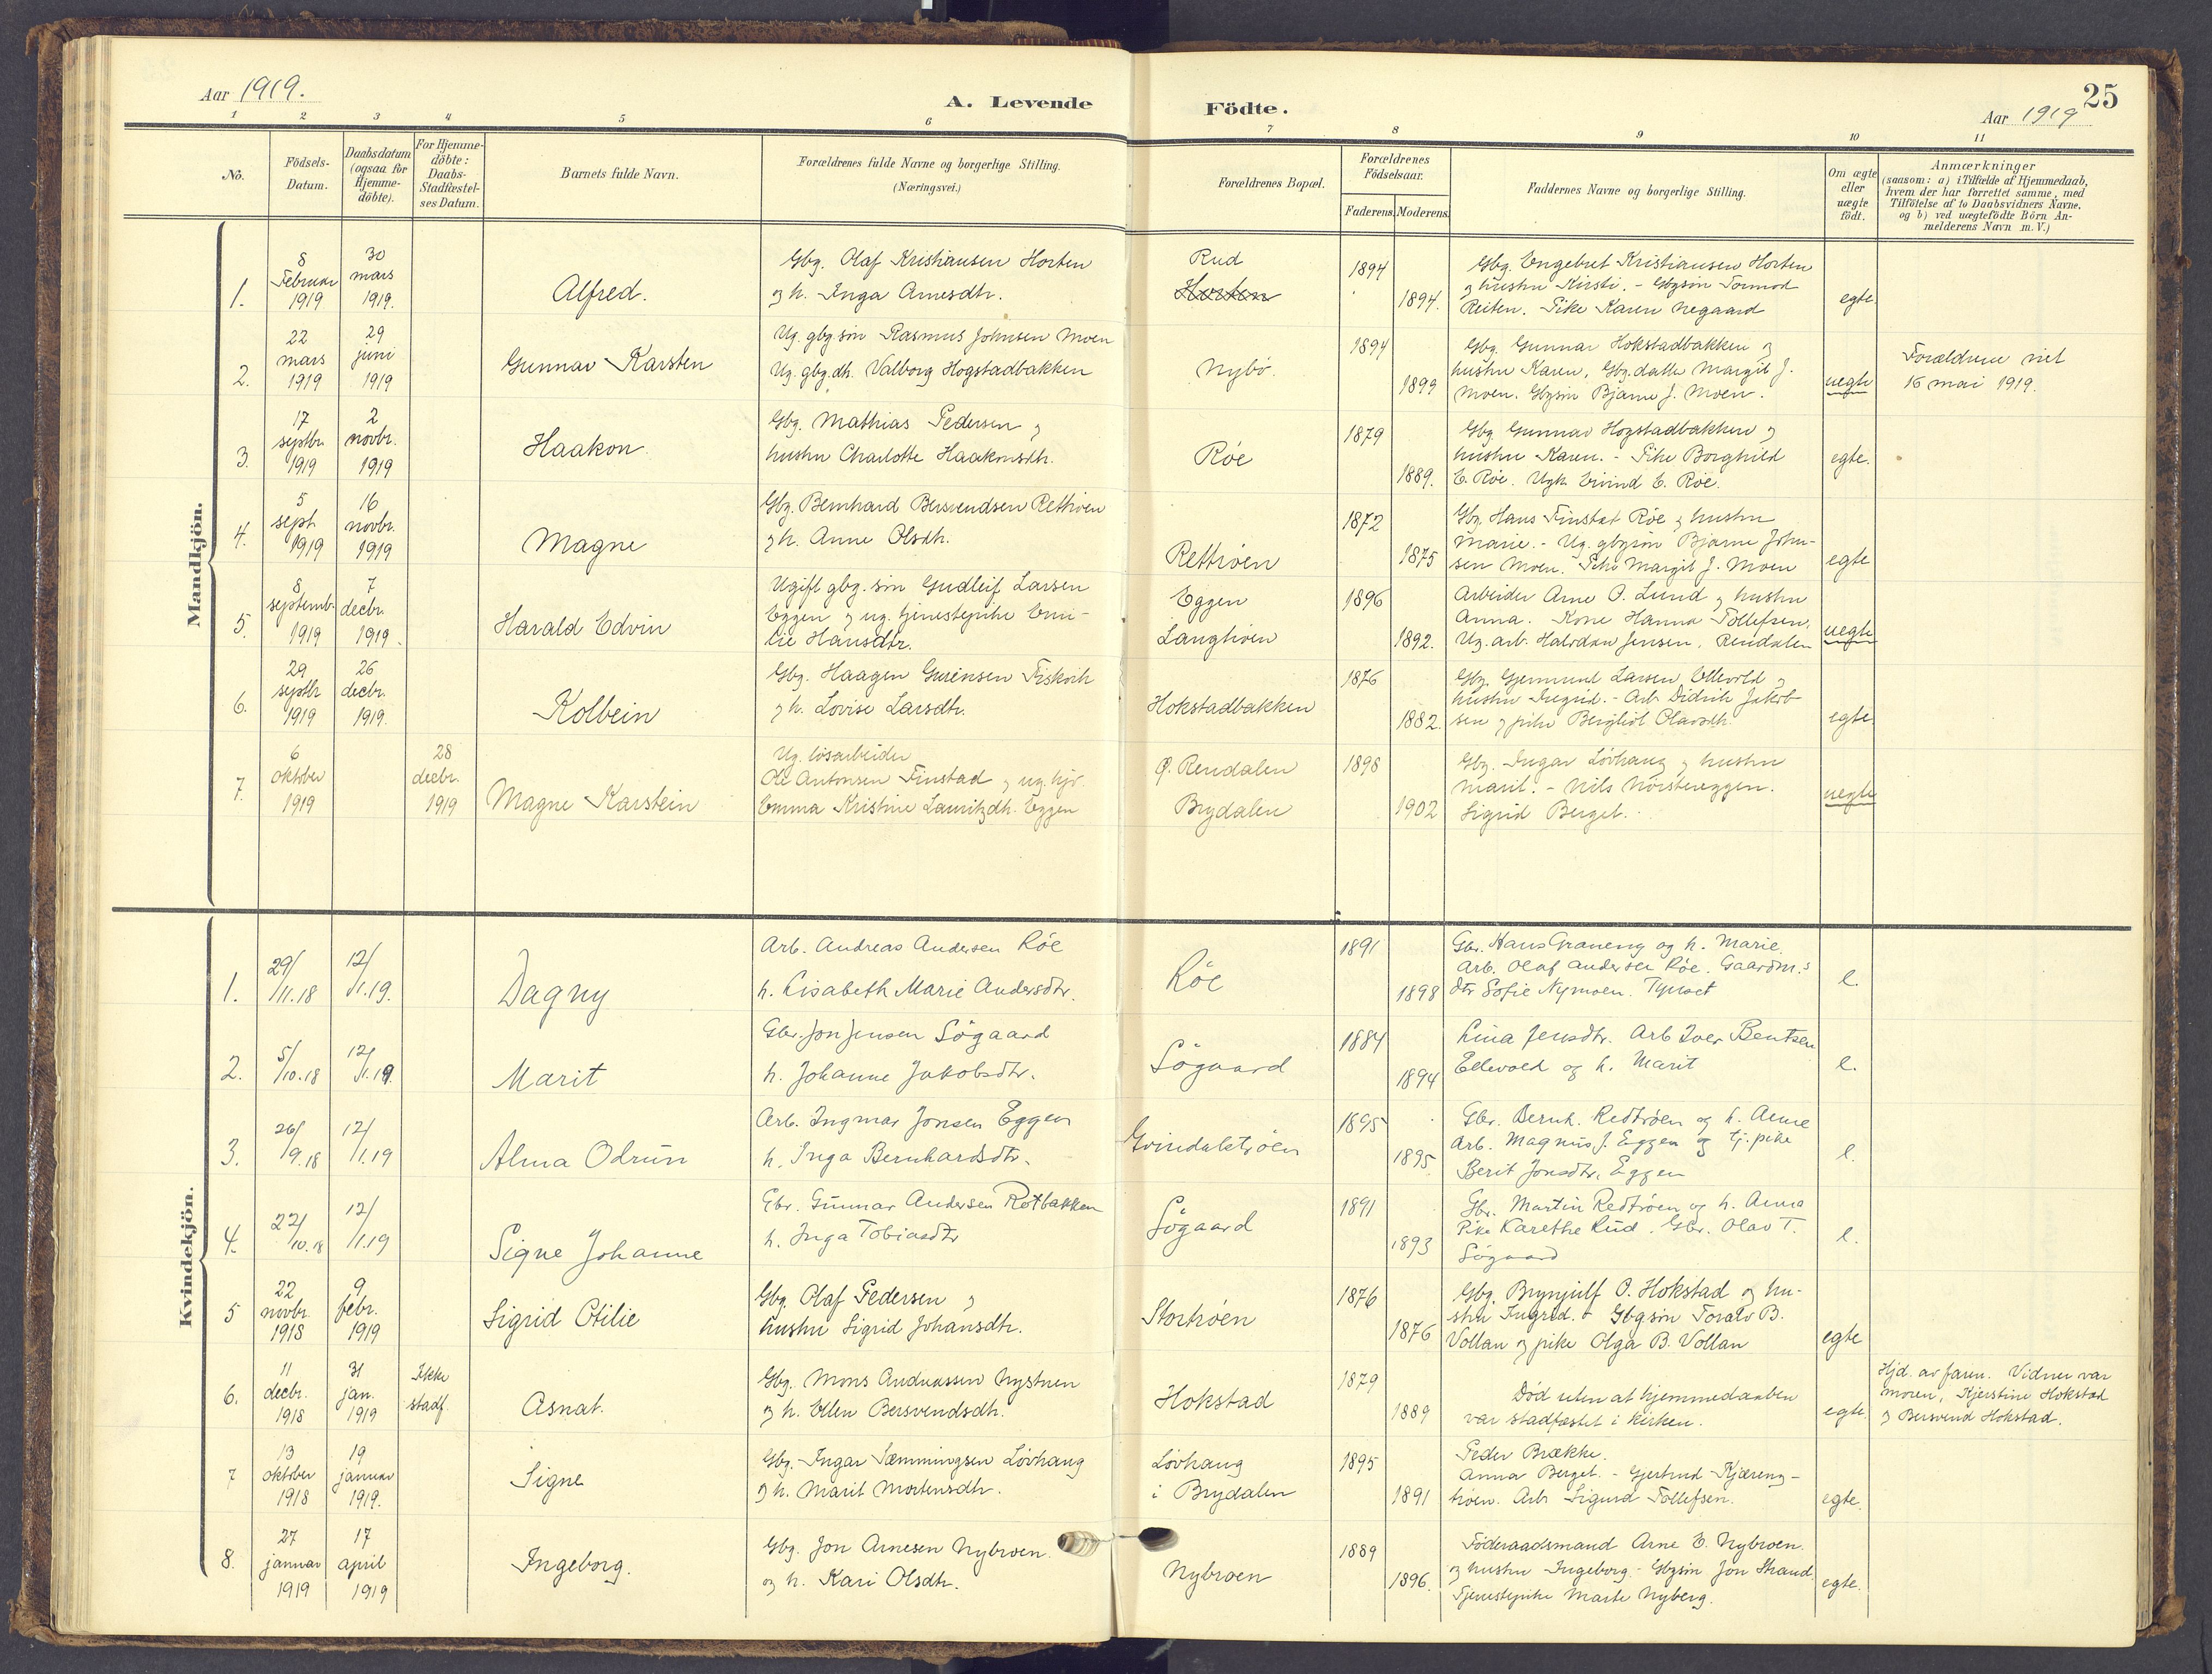 25
Aar 1919.
A. Levende Födte.
Aar 1919
1 2 3 4 5 6 7 8 9 10 11
No.
Födsels-
Datum.
Daabsdatum
(ogsaa for
Hjemme-
döbte).
For Hjemme-
döbte:
Daabs-
Stadfæstel-
ses Datum.
Barnets fulde Navn.
Forældrenes fulde Navne og borgerlige Stilling.
(Næringsvei.)
Forældrenes Bopæl.
Forældrenes
Födselsaar.
Faderens. Moderens.
Faddernes Navne og borgerlige Stilling.
Om ægte
eller
uægte
födt.
Anmærkninger
(saasom: a) i Tilfælde af Hjemmedaab,
hvem der har forrettet samme, med
Tilföielse af to Daabsvidners Navne.
og b) ved uægtefödte Börn An-
melderens Navn m. V.)
Mandkjön.
1.
8
Februar
1919
30
mars
1919.
Alfred.
Gbg. Olaf Kristiansen Horten
og h. Inga Arnesdtr.
Rud
Horten
1894
1894.
Gbg. Engebret Kristiansen Horten
og hustru Kirsti. - Gbgsøn Tormod
Reiten. Pike Karen Negaard
egte.
2.
22
mars
1919
29
juni
1919
Gunnar Karsten
Ug. gbg.søn Rasmus Johnsen Moen
Ug. gbg.dtr. Valborg Hogstadbakken
Nybø.
1894
1899
Gbg. Gunnar Hokstadbakken og
hustru Karen, Gbg.datter Margit J.
Moen. Gbgsøn Bjarne J. Moen.
uegte
Forældrene viet
16 mai 1919.
3.
17
septbr.
1919
2
novbr.
1919
Haakon.
Gbg. Mathias Pedersen og
hustru Charlotte Haakonsdtr.
Røe
1879
1889.
Gbg. Gunnar Hogstadbakken og
hustru Karen. - Pike Borghild
E. Røe. Ugk. Eivind E. Røe.
egte.
4.
5
sept.
1919
16
novbr.
1919
Magne
Gbg. Bernhard Bersvendsen Rettrøen
og h. Anne Olsdtr.
Rettrøen
1872
1875
Gbg. Hans Finstad Røe og hustru
Marie. - Ug. gbgsøn Bjarne John-
sen Moen. Pike Margit J. Moen
egte
5.
8
septemb.
1919
7
decbr.
1919.
Harald Edvin
Ugift gbg. søn Gudleif Larsen
Eggen og ug. tjenestepike Emi-
lie Hansdtr.
Eggen
Langtrøen
1896
1892.
Arbeider Arne O. Lund og hustru
Anna. Kone Hanna Tollefsen.
Ug. arb. Halvdan Jensen. Rendalen
uegte
6.
29
septbr
1919
26
decbr.
1919.
Kolbein
Gbg. Haagen Gurensen Fiskvik
og h. Lovise Larsdtr.
Hokstadbakken
1876
1882.
Gbg. Gjermund Larsen Ellevold og
hustru Ingrid. - Arb. Didrik Jakob-
sen og pike Bergliot Olavsdtr.
egte
7.
6
oktober
1919
28
decbr.
1919
Magne Karstein
Ug. løsarbeider
Ole Antonsen Finstad og ug. tjp.
Emma Kristine Lauritzdtr. Eggen
Ø. Rendalen
Brydalen
1898
1902
Gbg. Ingar Løvhaug og hustru
Marit. - Nils Nørstereggen.
Sigrid Berget.
uegte
Kvindekjön.
1.
29/
/11.18
12/
/1.19.
Dagny
Arb. Andreas Andersen Røe
h. Lisabeth Marie Andersdtr.
Røe
1891
1898
Gbr. Hans Graneng og h. Marie.
Arb. Olaf Andersen Røe. Gaardm.s
dtr Sofie Nymoen. Tynset
e.
2.
5/
/10.18
12/
/1.19.
Marit
Gbr. Jon Jensen Søgaard
h. Johanne Jakobsdtr.
Søgaard
1884
1894
Lina Jensdtr. Arb Iver Bentsen
Ellevold og h. Marit
e.
3.
26/
/9.18
12/
/1.19
Alma Odrun
Arb. Ingmar Jonsen Eggen
h. Inga Bernhardsdtr.
Gvindalstrøen
1895
1895.
Gbr. Bernh. Redtrøen og h. Anne
Arb. Magnus J. Eggen og tj.pike
Berit Jonsdtr. Eggen
e.
4.
22/
/10.18
12/
/1.19
Signe Johanne
Gbr. Gunnar Andersen Rotbakken
h. Inga Tobiasdtr
Søgaard
1891
1893
Gbr. Martin Redtrøen og h. Anna
Pike Karethe Rud. Gbr. Olav T.
Søgaard
e.
5
22
novbr.
1918
9
febr.
1919
Sigrid Otilie
Gbg. Olaf Pedersen og
hustru Sigrid Johansdtr.
Stortrøen
1876
1876
Gbg. Brynjulf O. Hokstad og hu-
stru Ingrid. - Gbgsøn Toralv B.
Vollan og pike Olga B. Vollan
egte
6.
11
decbr.
1918
31
jan.
1919
Ikke
stadf.
Asnat.
Gbg. Mons Andreassen Nystuen
og h. Ellen Bersvendsdtr.
Hokstad
1879
1889
Død uten at hjemmedaaben
var stadfæstet i kirken.
egte.
Hjd. av faren. Vidner var
moren, Kjerstine Hokstad
og Bersvend Hokstad.
7
13
oktober
1918
19
januar
1919.
Signe
Gbg. Ingar Sæmmingsen Løvhaug
og h. Marit Mortensdtr.
Løvhaug
i Brydalen
1895
1891
Peder Brække.
Anna Berget. - Gjertrud Kjæreng-
trøen. Arb. Sigurd Tollefsen.
egte.
8.
27
januar
1919
17
april
1919
Ingeborg.
Gbg. Jon Arnesen Nybroen.
og h. Kari Olsdtr.
Nybroen
1889
1896.
Føderaadsmand Arne E. Nybroen.
og hustru Ingeborg - Gbgsøn Jon Strand.
Tjenestepike Marte Nyberg.
egte.